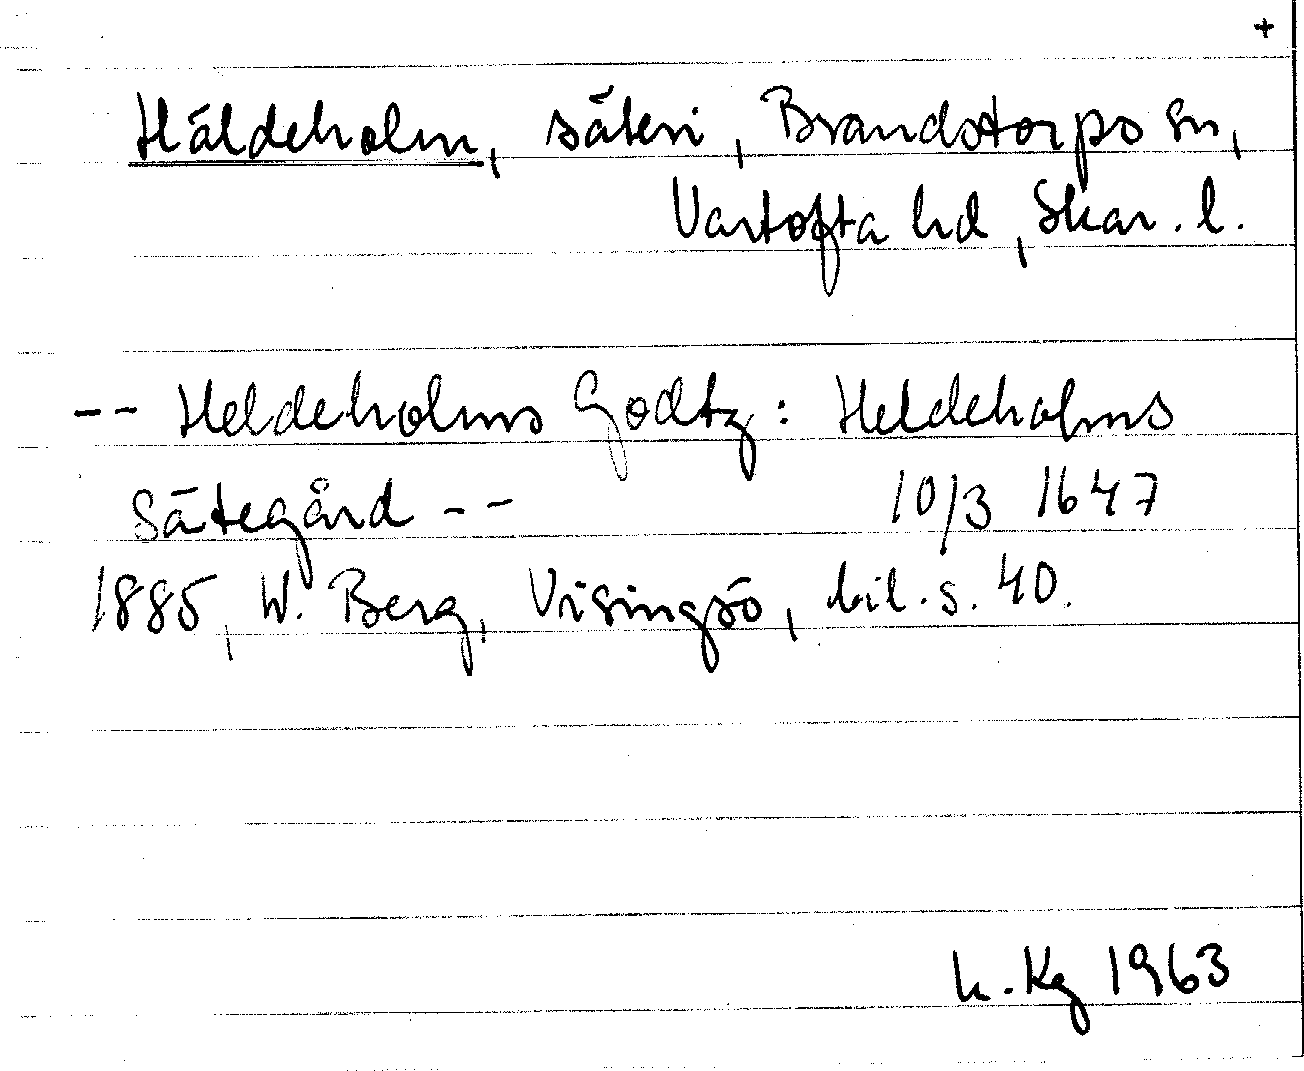 +
Häldeholm, säteri, Brandstorps sn,
Vartofta hd, Skar. l.
-- Heldeholms Godtz: Heldeholms
Sätegård -- 10/3 1647
1885, W. Berg, Visingsö, bil. s. 40.
h. Kg 1963